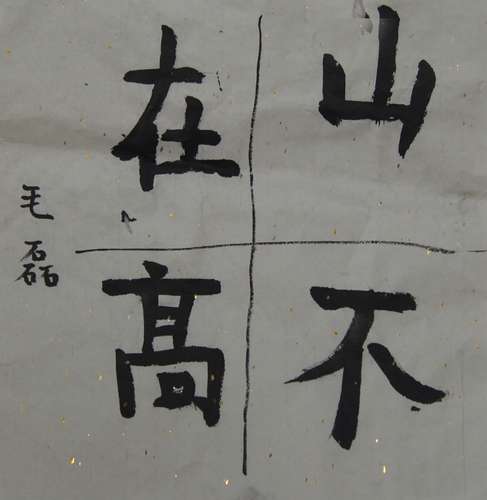 山不
在高
毛磊